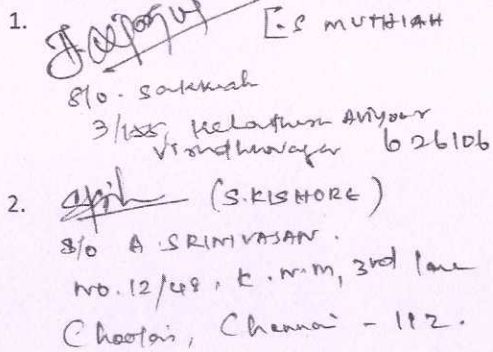 1. [S MUTHIAH
S/o. Sakkiah
3/155, Kelathurn Aviyour
Virudhunagar 626106
2. (S.KISHORE)
S/o A.SRINIVASAN.
No.12/48, K.M.M, 3rd lane
Choolai, Chennai - 112.